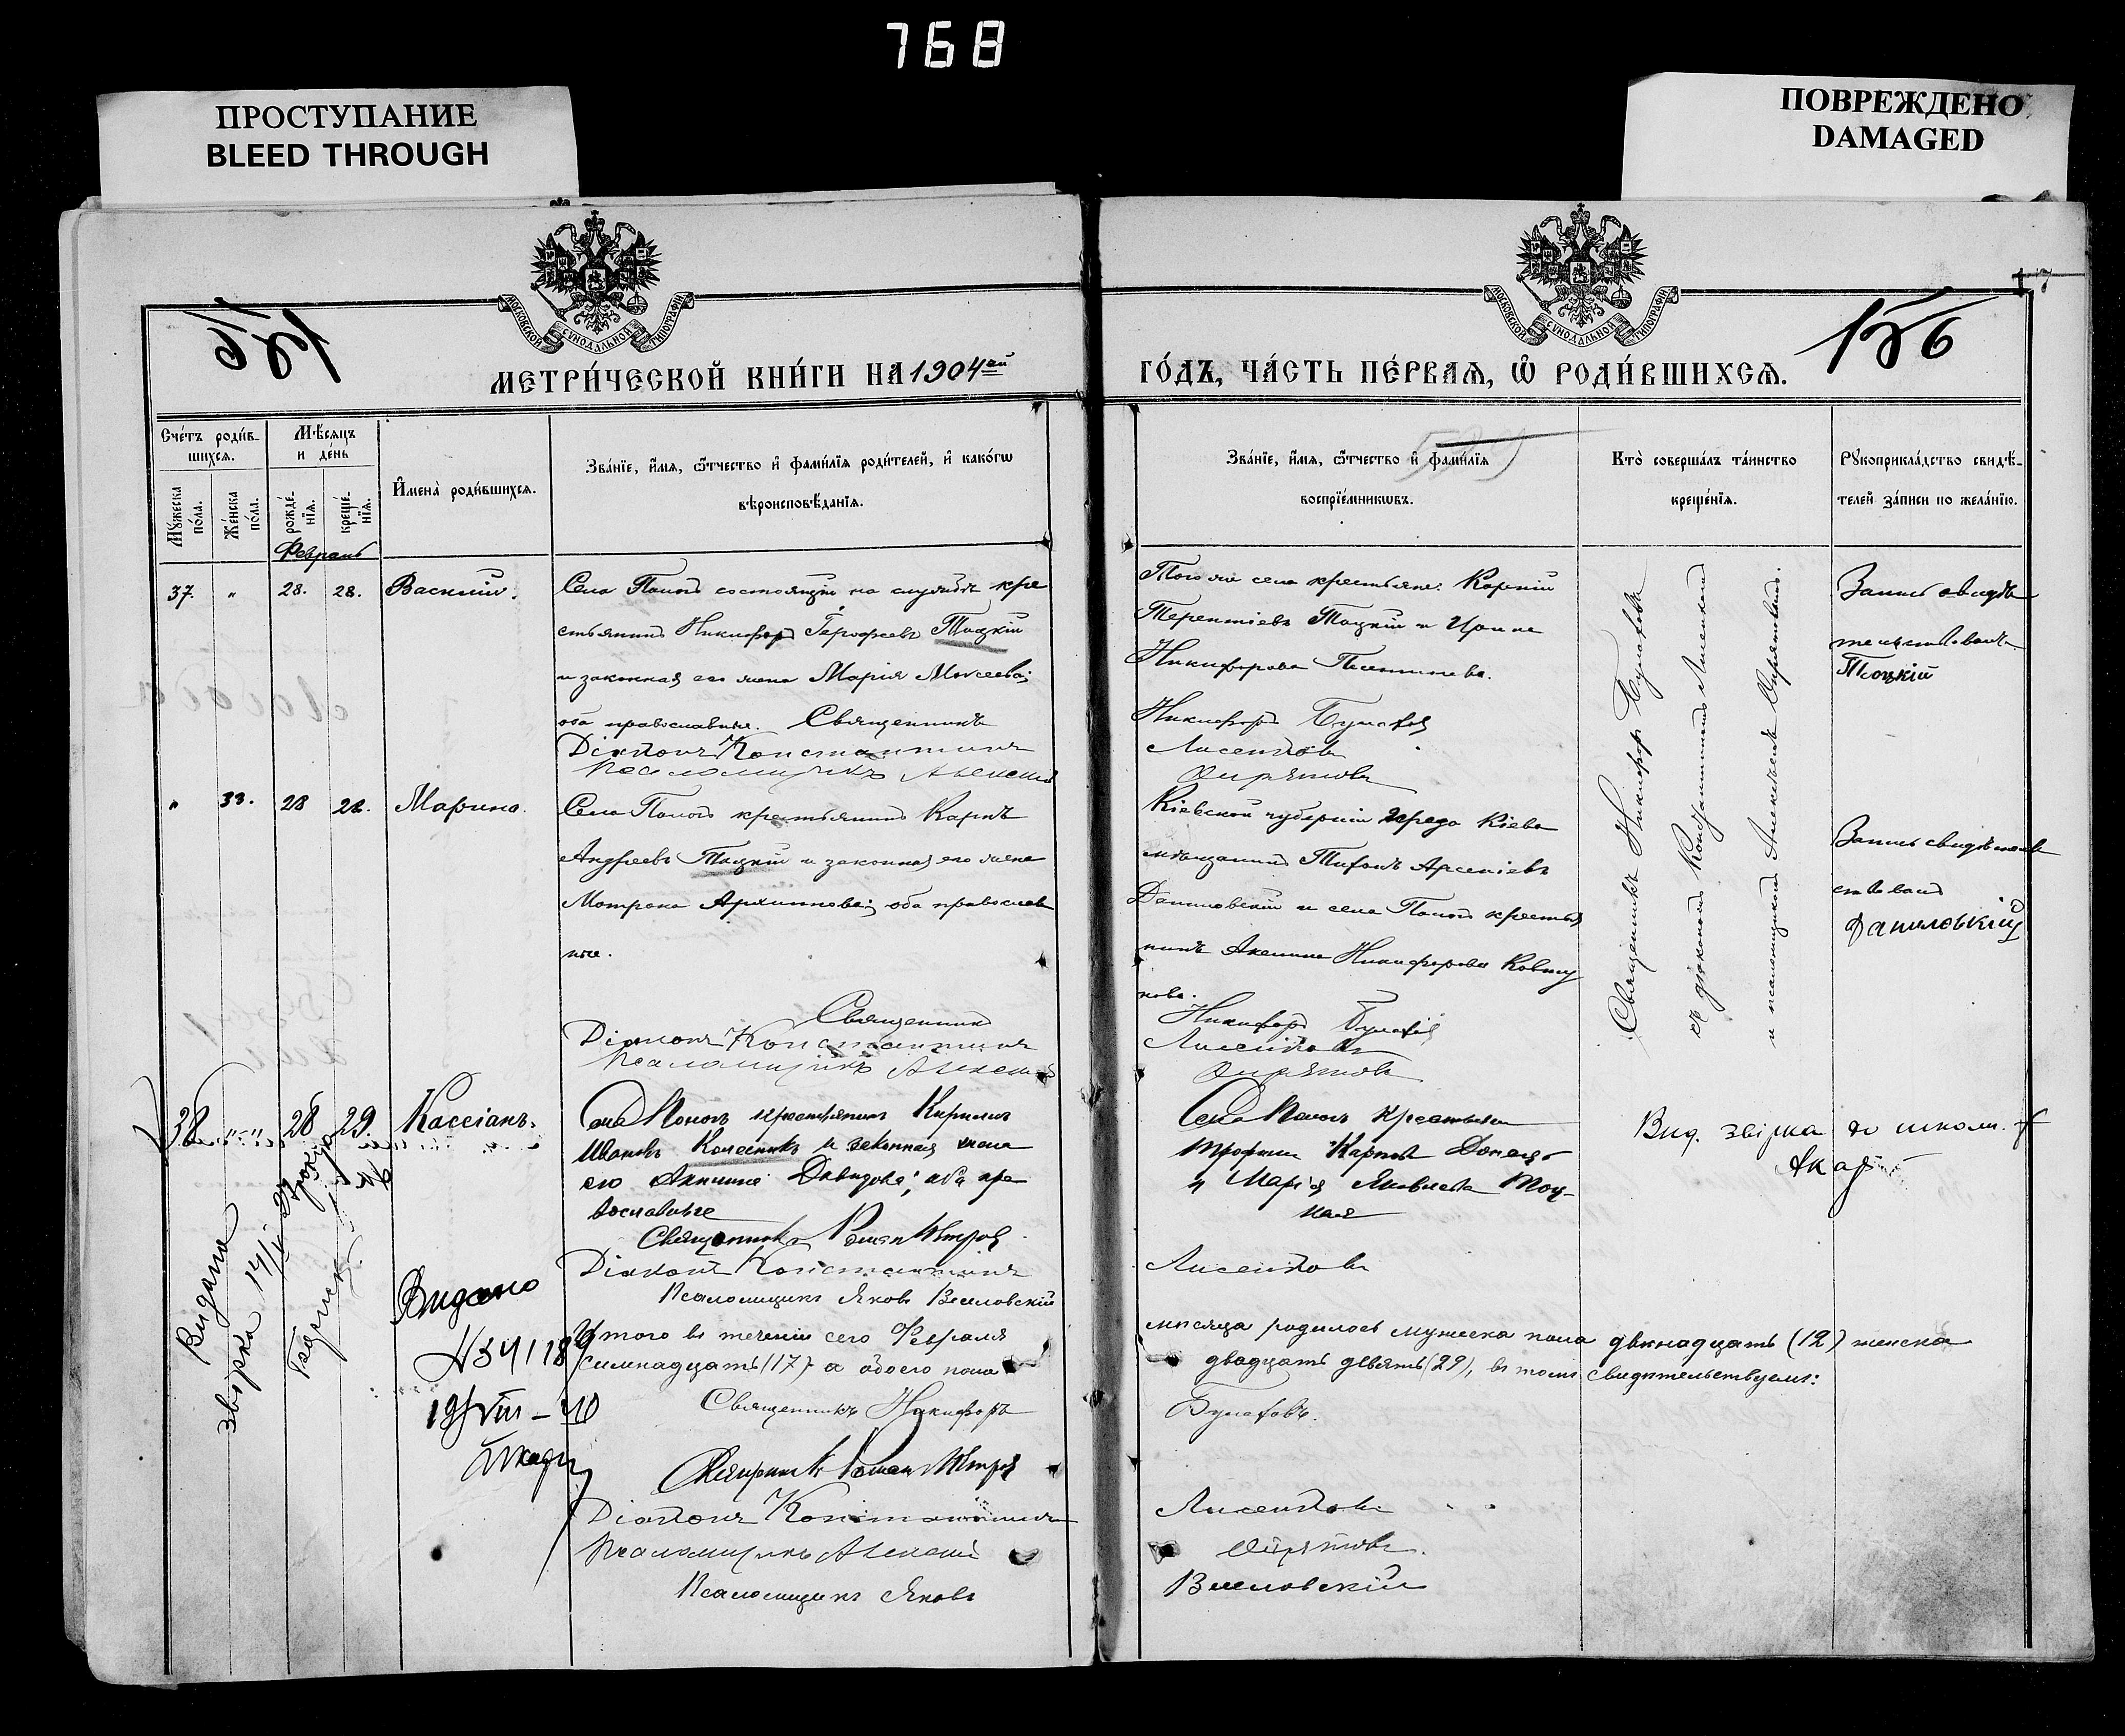 768
ПРОСТУПАНИЕ
BLEED THROUGH
ПОВРЕЖДЕНО
DAMAGED
МОСКОВСКОЙ СѴНОДАЛЬНОЙ ТИПОГРАФІИ
МОСКОВСКОЙ СѴНОДАЛЬНОЙ ТИПОГРАФІИ
156
МЕТРИ́ЧЕСКОЙ КНИ́ГИ НА 1904ый
ГО́ДЪ, ЧА́СТЬ ПЕ́РВАѦ, Ѡ РОДИ́ВШИХСѦ.
Сче́тъ роди́в-
шихся.
Мѣ́сяцъ
и де́нь
Мꙋ́жеска
по́ла.
Же́нска
по́ла.
рожде́-
нїя.
креще́-
нїя.
И҆мена̀ роди́вшихся.
Зва́нїе, и҆́мя, ѻ҆́тчество и҆ фами́лїя роди́телей, и҆ како́гѡ
вѣроисповѣ́данїя.
Зва́нїе, и҆́мя, ѻ҆́тчество и҆ фами́лїя
воспрїе́мникѡвъ.
Кто̀ соверша́лъ та́инство
креще́нїя.
Рꙋкоприкла́дство свидѣ́-
телей за́писи по жела́нїю.
Февраль
37. " 28. 28. Василій.
Села Пологъ состоящій на службѣ кре
стьянинъ Никифоръ Ерофеевъ Тоцкій
и законная его жена Марія Моисеева;
оба православные. Священникъ
Діаконъ Константинъ
Псаломщикъ Алексей
Того же села крестьяне: Карпій
Терентіевъ Тоцкій и Ирина
Никифорова
Никифоръ Булатовъ
Лисенковъ
Опрятовъ
Тоцкій
Священникъ Никифоръ Булатовъ
съ діакономъ Константиномъ Лисенковымъ
и псаломщикомъ Алексѣемъ Опрятовымъ.
" 28 28. Марина.
Села Пологъ крестьянинъ Карпъ
Андреевъ Тоцкій и законная его жена
Мотрона Архиппова; оба православ
ные.
Священникъ
Діаконъ Константинъ
Псаломщикъ Алексей
Кіевской губерніи города Кіева
мѣщанинъ Тихонъ Арсеніевъ
Даниловскій и села Пологъ крестья
Акилина Никифорова
Никифоръ Булатовъ
Лисенковъ
Опрятовъ
Запись свидѣтель
ствовалъ
Даниловскій
38 " " 28 29. Кассіанъ.
Села Пологъ крестьянинъ Кирилъ
Ивановъ Колесникъ и законная жена
его Акилина Давидова; оба пра
вославные
Священникъ Роман Петров
Діаконъ Константинъ
Псаломщикъ Яковъ Веселовскій
Села Пологъ крестьяне
Трофимъ Карповъ Донецъ
и Марія Яковлева Тоц-
кая
Лисенковъ
Вид. звірка до школи.
Видана
звірка 14/V 23 року
Видано
19/VIII – 40
Итого въ теченіи сего Февраля
мѣсяца родилось мужеска пола двѣнадцать (12) женска
семнадцать (17) а обоего пола
двадцать девять (29), въ томъ свидѣтельствуемъ:
Священникъ Никифоръ
Булатовъ.
Священник Роман Петров
Діаконъ Константинъ
Лисенковъ
Псаломщикъ Алексей
Опрятовъ.
Псаломщикъ Яковъ
Веселовскій